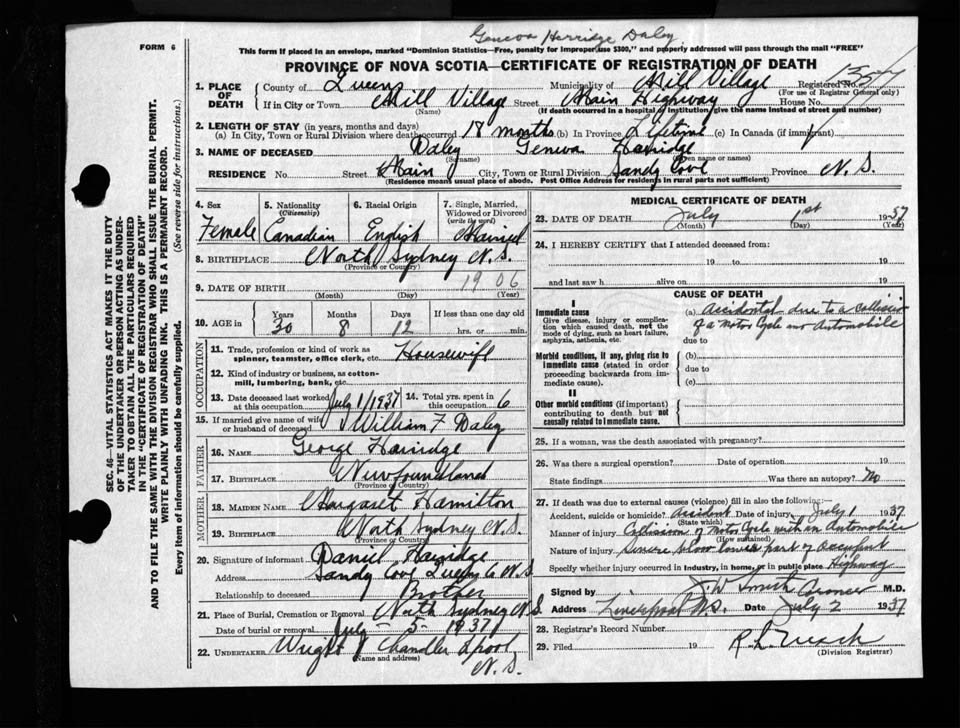 Geneva Herridge Daley
FORM 6
This form if placed in an envelope, marked "Dominion Statistics—Free, penalty for improper use $300," and properly addressed will pass through the mail "FREE"
PROVINCE OF NOVA SCOTIA—CERTIFICATE OF REGISTRATION OF DEATH
1. PLACE OF DEATH
County of Queens Municipality of Mill Village Registered No.
(For use of Registrar General only)
If in City or Town Mill Village Street Main Highway House No.
(Name) (If death occurred in a hospital or institution, give the name instead of street and number)
2. LENGTH OF STAY (in years, months and days)
(a) In City, Town or Rural Division where death occurred 18 months (b) In Province Lifetime (c) In Canada (if immigrant)
3. NAME OF DECEASED Daley Geneva Harridge
(Surname) (Given name or names)
RESIDENCE No. Street Main City, Town or Rural Division Sandy Cove Province N.S.
(Residence means usual place of abode. Post Office Address for residents in rural parts not sufficient)
SEC. 46—VITAL STATISTICS ACT MAKES IT THE DUTY
OF THE UNDERTAKER OR PERSON ACTING AS UNDER-
TAKER TO OBTAIN ALL THE PARTICULARS REQUIRED
IN THE "CERTIFICATE OF REGISTRATION OF DEATH"
AND TO FILE THE SAME WITH THE DIVISION REGISTRAR WHO SHALL ISSUE THE BURIAL PERMIT.
WRITE PLAINLY WITH UNFADING INK. THIS IS A PERMANENT RECORD.
Every item of information should be carefully supplied. (See reverse side for instructions.)
4. Sex 5. Nationality (Citizenship) 6. Racial Origin 7. Single, Married, Widowed or Divorced (write the word)
Female Canadian English Married
8. BIRTHPLACE North Sydney N.S.
(Province or Country)
9. DATE OF BIRTH 1906
(Month) (Day) (Year)
10. AGE in Years Months Days If less than one day old
30 8 12 hrs. or min.
OCCUPATION
11. Trade, profession or kind of work as spinner, teamster, office clerk, etc. Housewife
12. Kind of industry or business, as cotton-mill, lumbering, bank, etc.
13. Date deceased last worked at this occupation July 1/1937 14. Total yrs. spent in this occupation 6
15. If married give name of wife or husband of deceased William F Daley
FATHER
16. NAME George Harridge
17. BIRTHPLACE Newfoundland
(Province or Country)
MOTHER
18. MAIDEN NAME Margaret Hamilton
19. BIRTHPLACE North Sydney N.S.
(Province or Country)
20. Signature of informant Daniel Harridge
Address Sandy Cove Queens Co N.S.
Relationship to deceased Brother
21. Place of Burial, Cremation or Removal North Sydney N.S.
Date of burial or removal July - 5 - 1937
22. UNDERTAKER Wright Chandler Lpool
(Name and address) N.S.
MEDICAL CERTIFICATE OF DEATH
23. DATE OF DEATH July 1st 1937
(Month) (Day) (Year)
24. I HEREBY CERTIFY that I attended deceased from:
19 to 19
and last saw h alive on 19
CAUSE OF DEATH
I
Immediate cause
Give disease, injury or complication which caused death, not the mode of dying, such as heart failure, asphyxia, asthenia, etc.
(a) Accidental due to a collision
of a Motor Cycle and Automobile
due to
Morbid conditions, if any, giving rise to immediate cause (stated in order proceeding backwards from immediate cause).
(b)
due to
(c)
II
Other morbid conditions (if important) contributing to death but not causally related to immediate cause.
25. If a woman, was the death associated with pregnancy?
26. Was there a surgical operation? Date of operation 19
State findings Was there an autopsy? No
27. If death was due to external causes (violence) fill in also the following:—
Accident, suicide or homicide? Accident Date of injury July 1 1937
(State which)
Manner of injury Collision of Motor Cycle with an Automobile
(How sustained)
Nature of injury Severe blow lower part of Occiput
Specify whether injury occurred in industry, in home, or in public place Highway
Signed by J.W Smith Coroner M.D.
Address Liverpool N.S. Date July 2 1937
28. Registrar's Record Number
29. Filed 19
(Division Registrar)